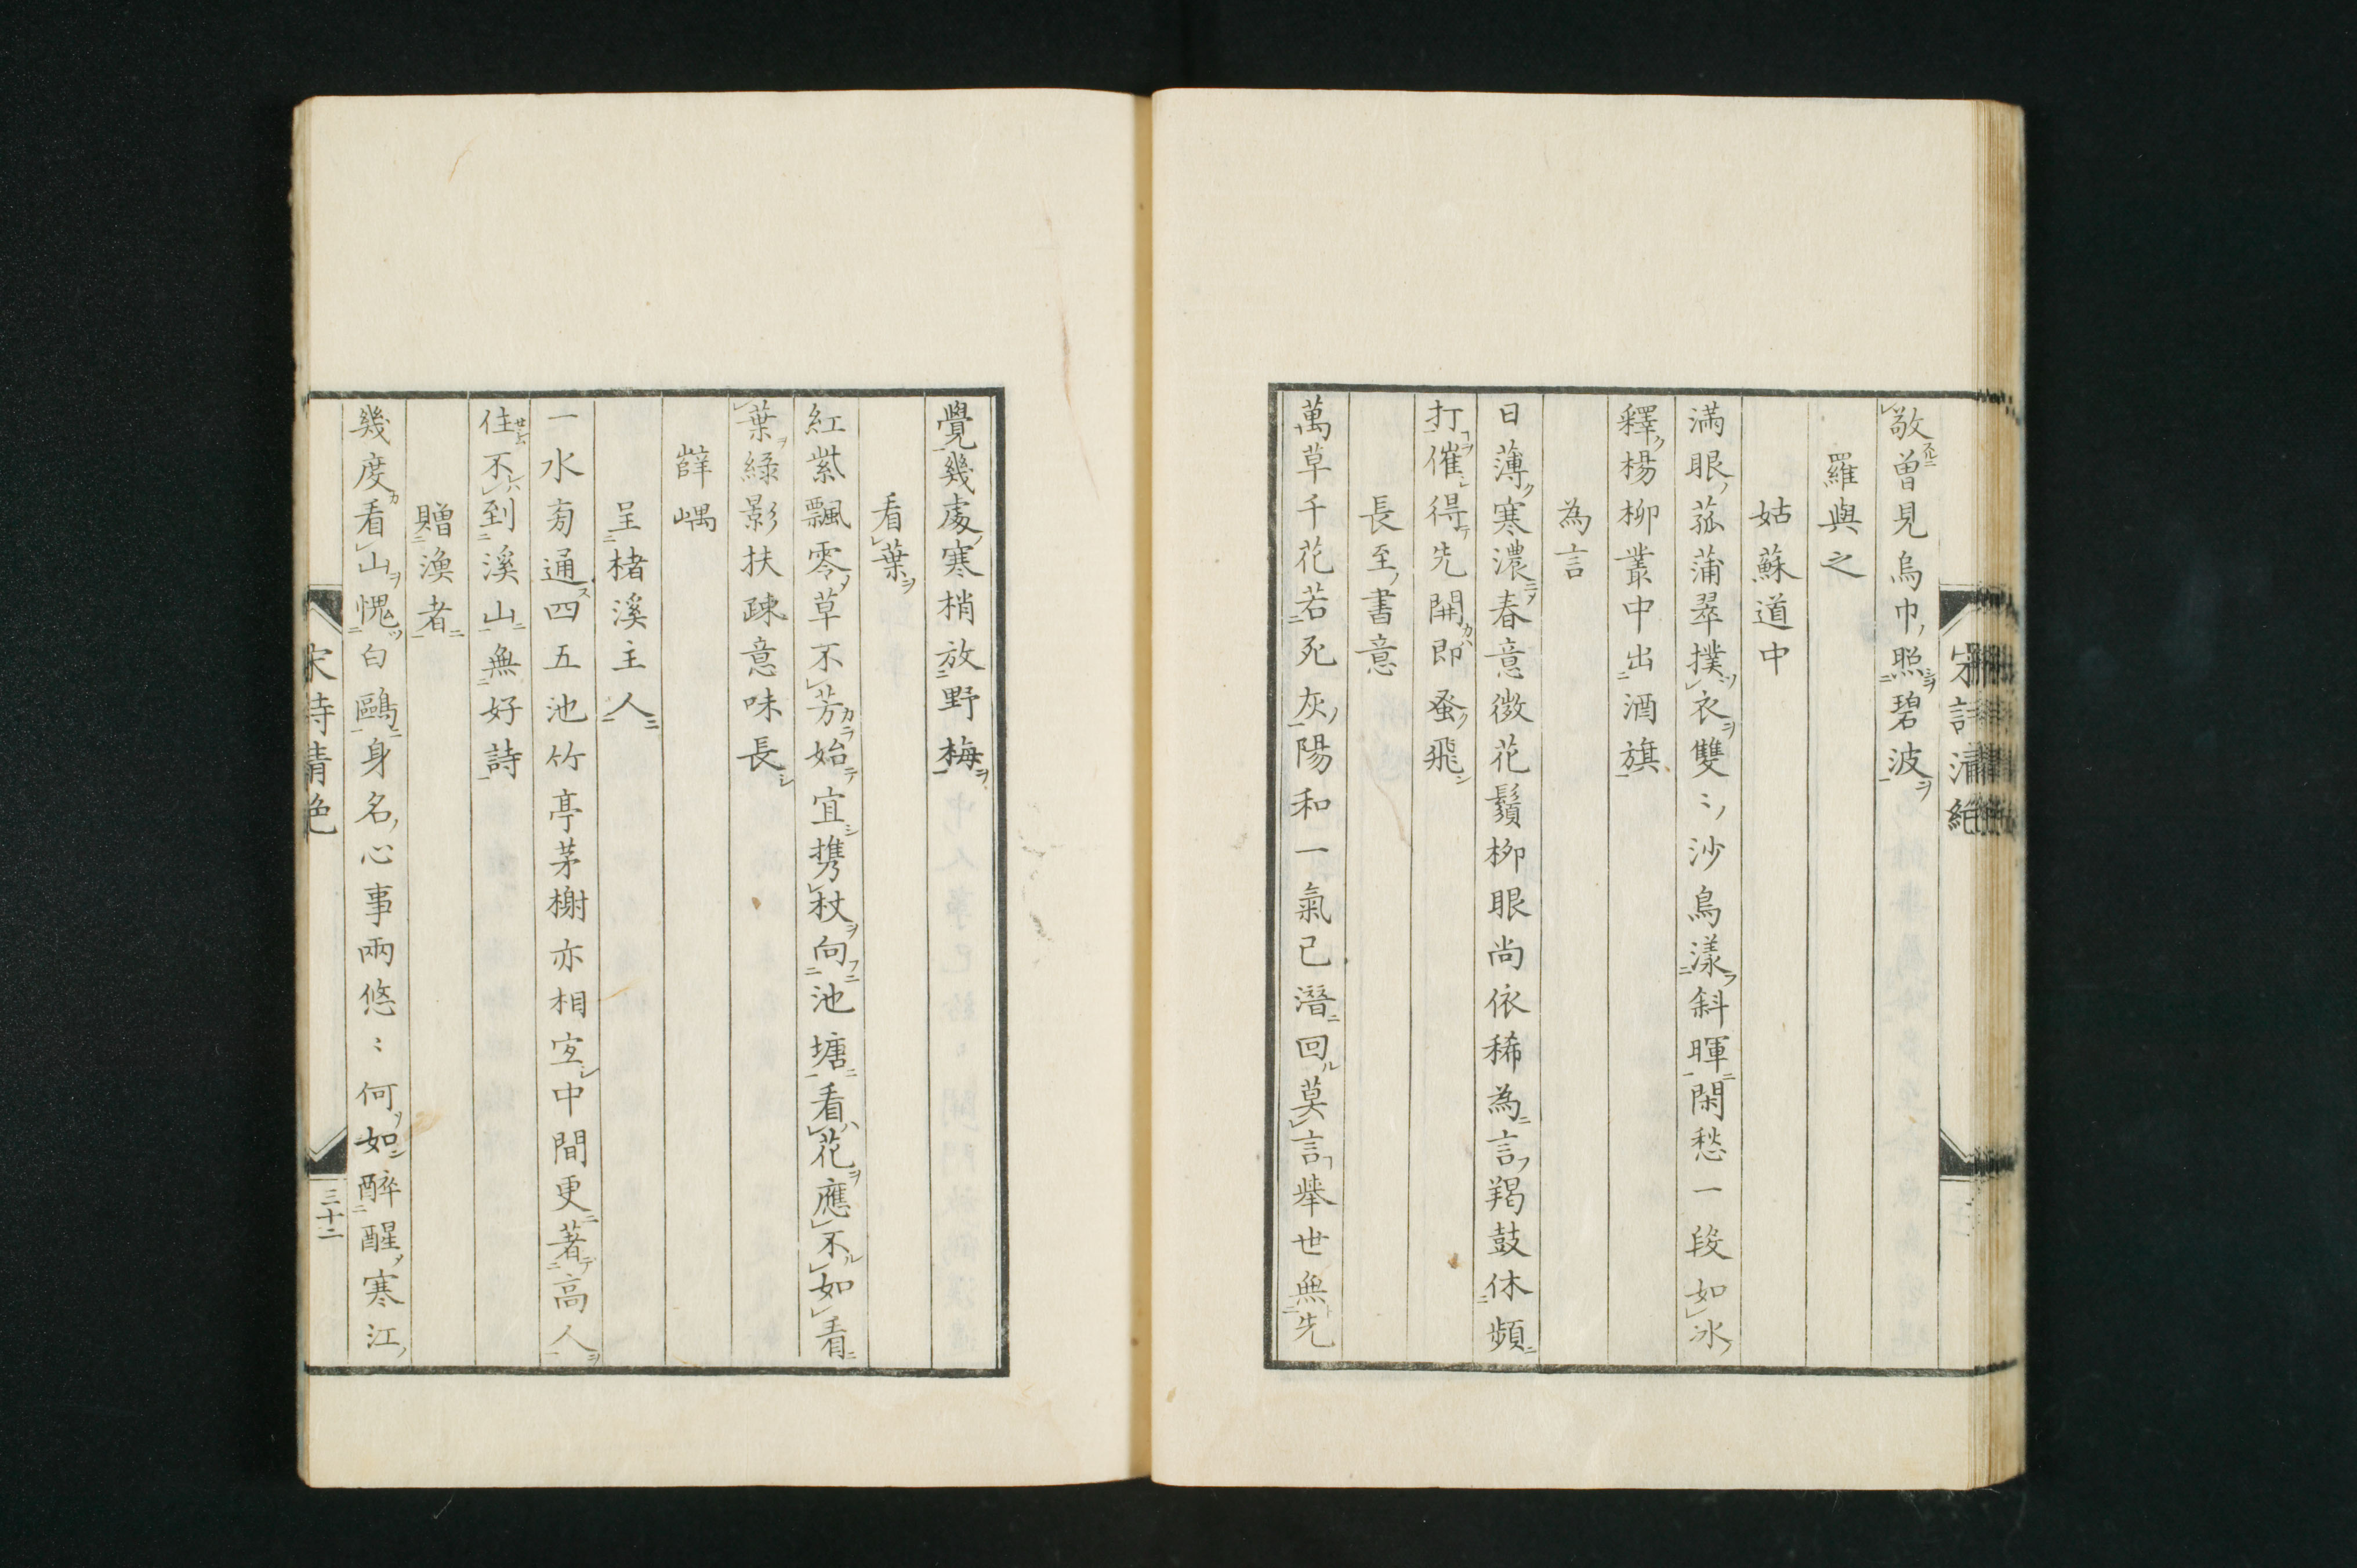 宋詩清絶
敲曽見烏巾照碧波
羅與之
姑蘇道中
滿眼菰蒲翠撲衣雙〻沙鳥漾斜暉閑愁一段如冰
釋楊柳叢中出酒旗
為言
日薄寒濃春意微花鬚柳眼尚依稀為言羯鼓休頻
打催得先開即蚤飛
長至書意
萬草千花若死灰陽和一氣已潛回莫言舉世無先
覺幾處寒梢放野梅
看葉
紅紫飄零草不芳始宜携杖向池塘看花應不如看
葉綠影扶疎意味長
薛嵎
呈楮溪主人
一水旁通四五池竹亭茅榭亦相宜中間更著高人
住不到溪山無好詩
贈漁者
幾度看山愧白鷗身名心事兩悠〻何如醉醒寒江
宋詩清絶
三十二